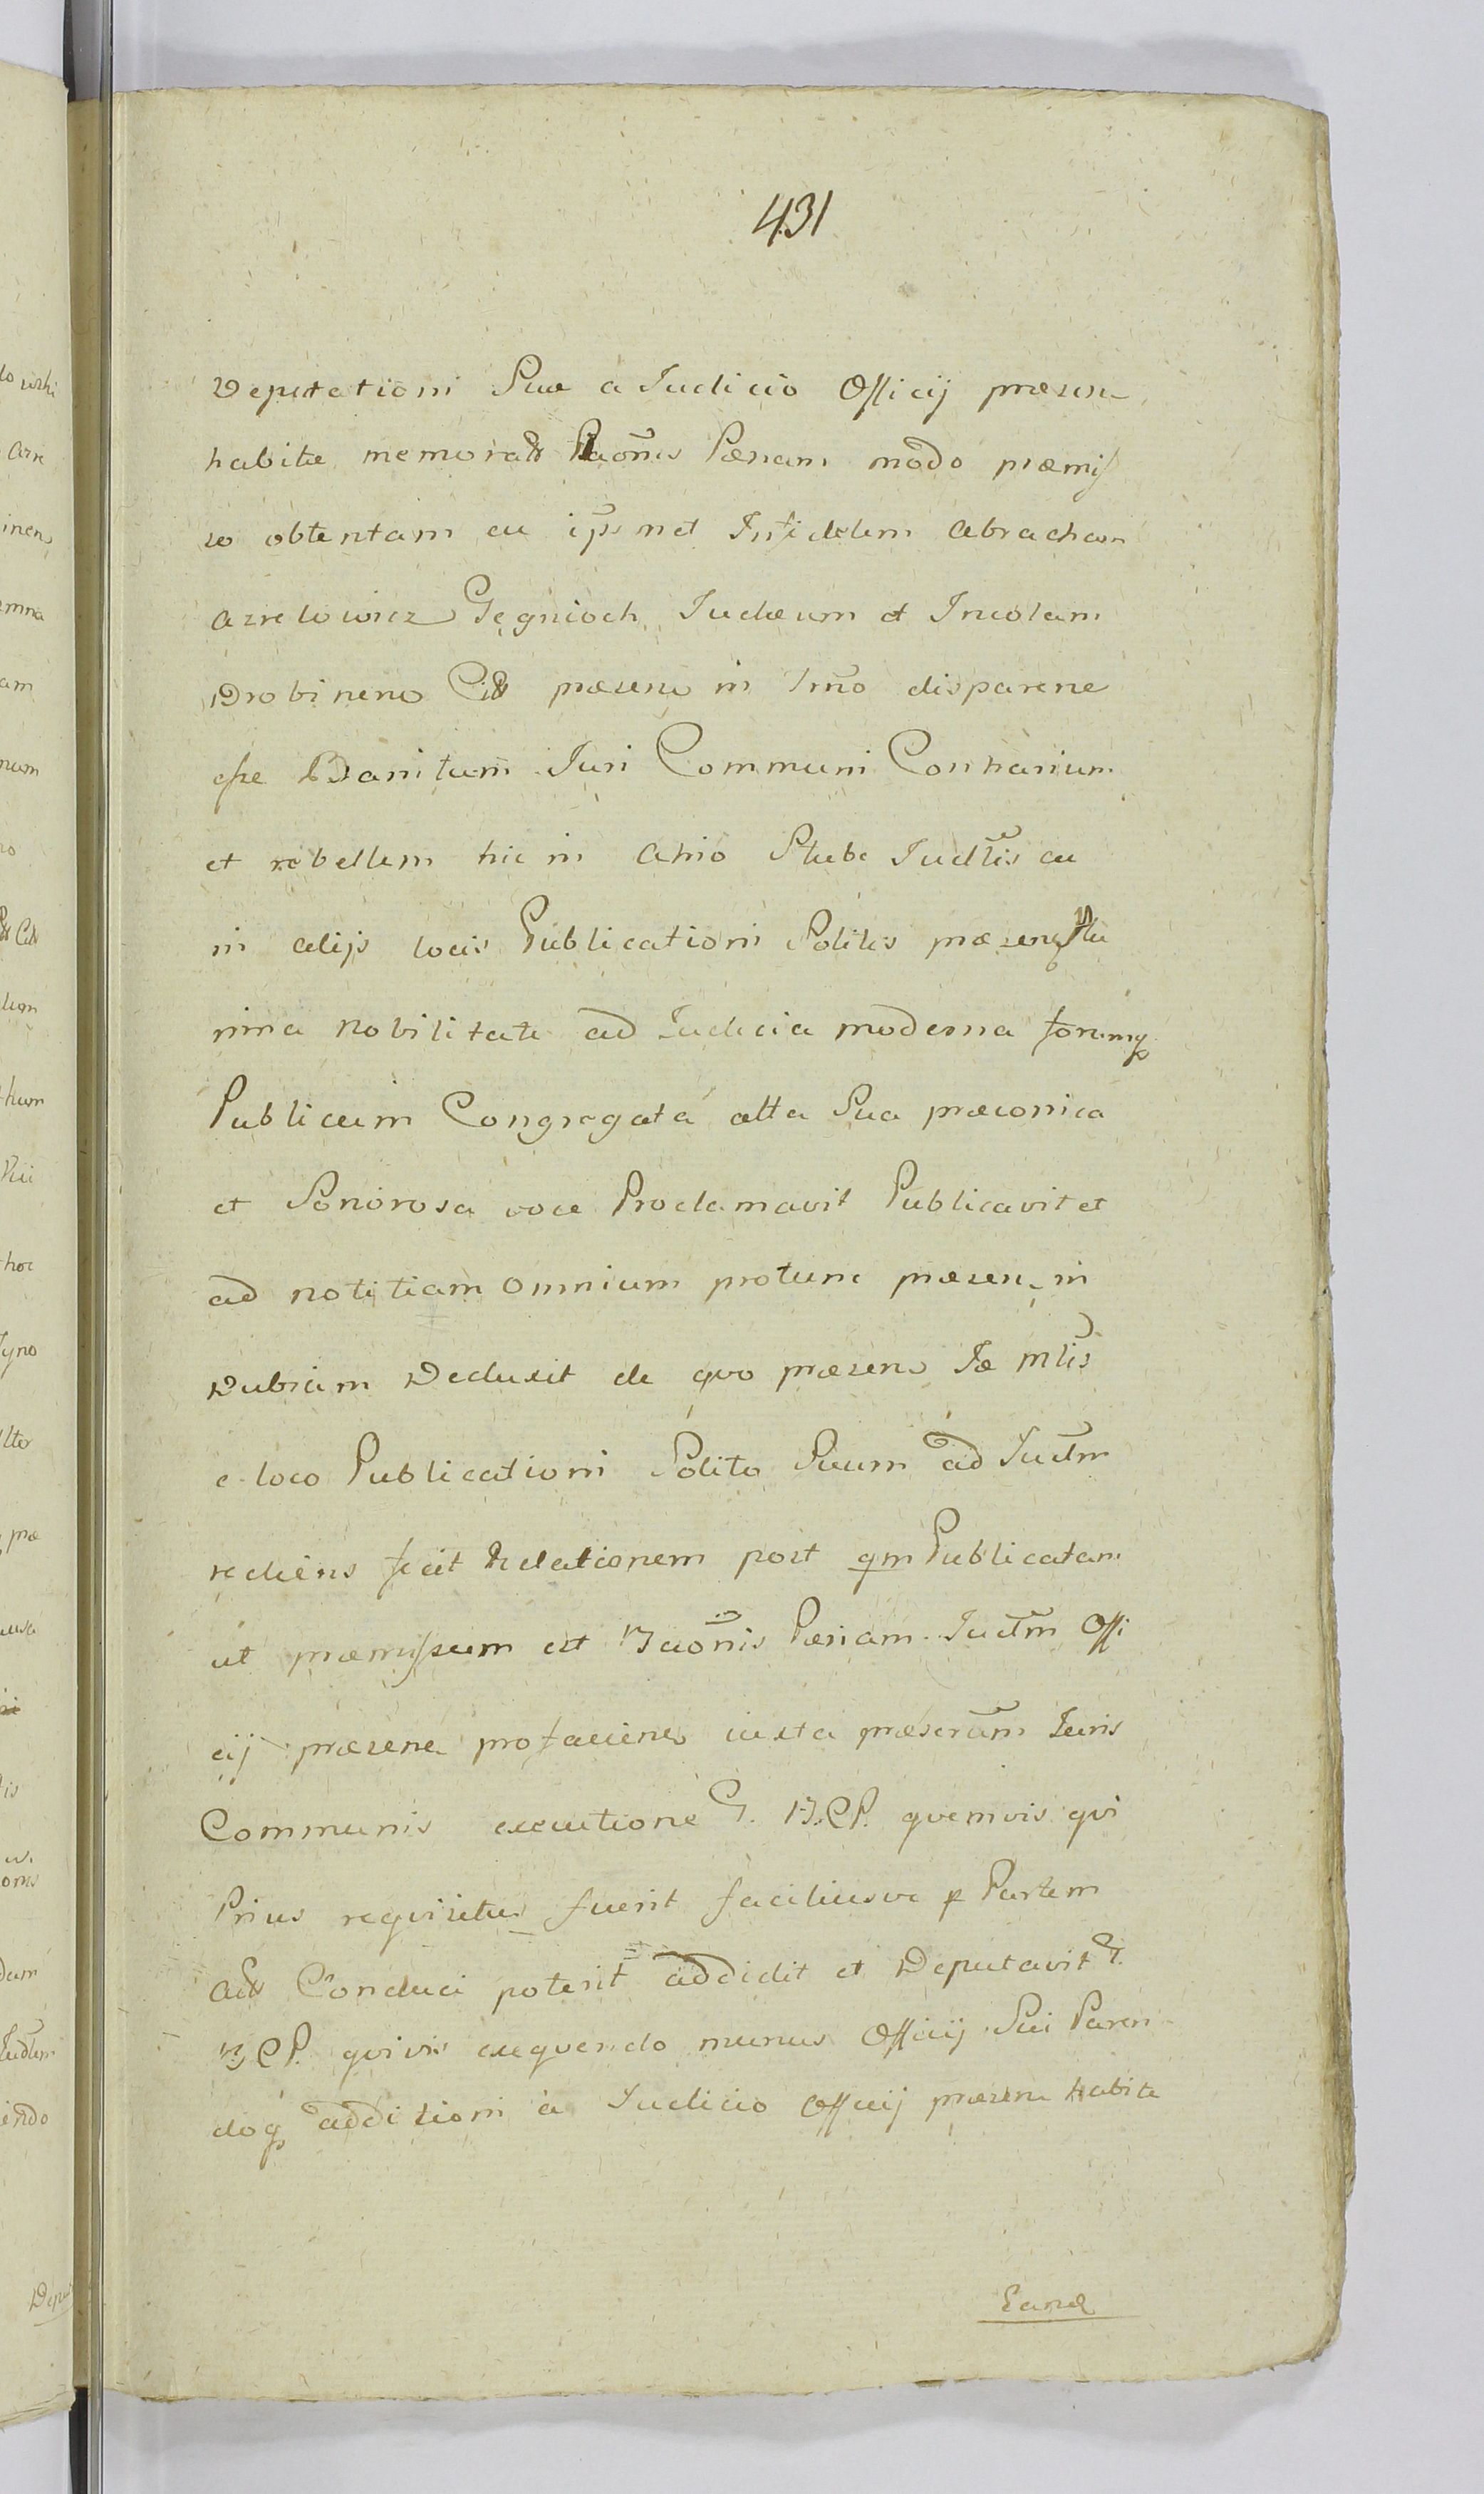 431
Deputationi Suæ a Iudicio Officij præsen
habitæ memorat Baonis Pænam modo præmis
so obtentam eu ips met Infidelem Abracham
Azrelowicz Gęgnioch Iudæum et Incolam
Drobinens Citt præsens in Trno disparene
esse Banitum Iuri Communi Contrarium
et rebellem hic in Atrio Stubæ Iudlis eu
in alijs locis Publicationi Solitis præsens Plu
rima Nobilitate ad Iudicia moderna forumq
Publicum Congregata alta Sua præconica
et Sonorosa voce Proclamavit Publicavit et
ad notitiam omnium protunc præsen in
Dubiam Deduxit de quo præsens Iæ mlis
e loco Publicationi Solito Suum ad Iudm
rediens fecit Relationem post qm Publicatam
ut præmissum est Baonis Pænam Iudm Offi
cij præsens profaciene iuxta præscrum Iuris
Communis executione G. B. CP. quemvis qui
Prius requisitus fuerit faciliusve p Partem
Act Conduci poterit addidit et Deputavit G.
B. CP. quivis exequendo munus Officij Sui Paren
doq additioni a Iudicio Officij præsen habita
Eand
lo
Arre
inens
emna
am
num
ro
lum
hum
hoc
præ
is
dum
endo
Depu